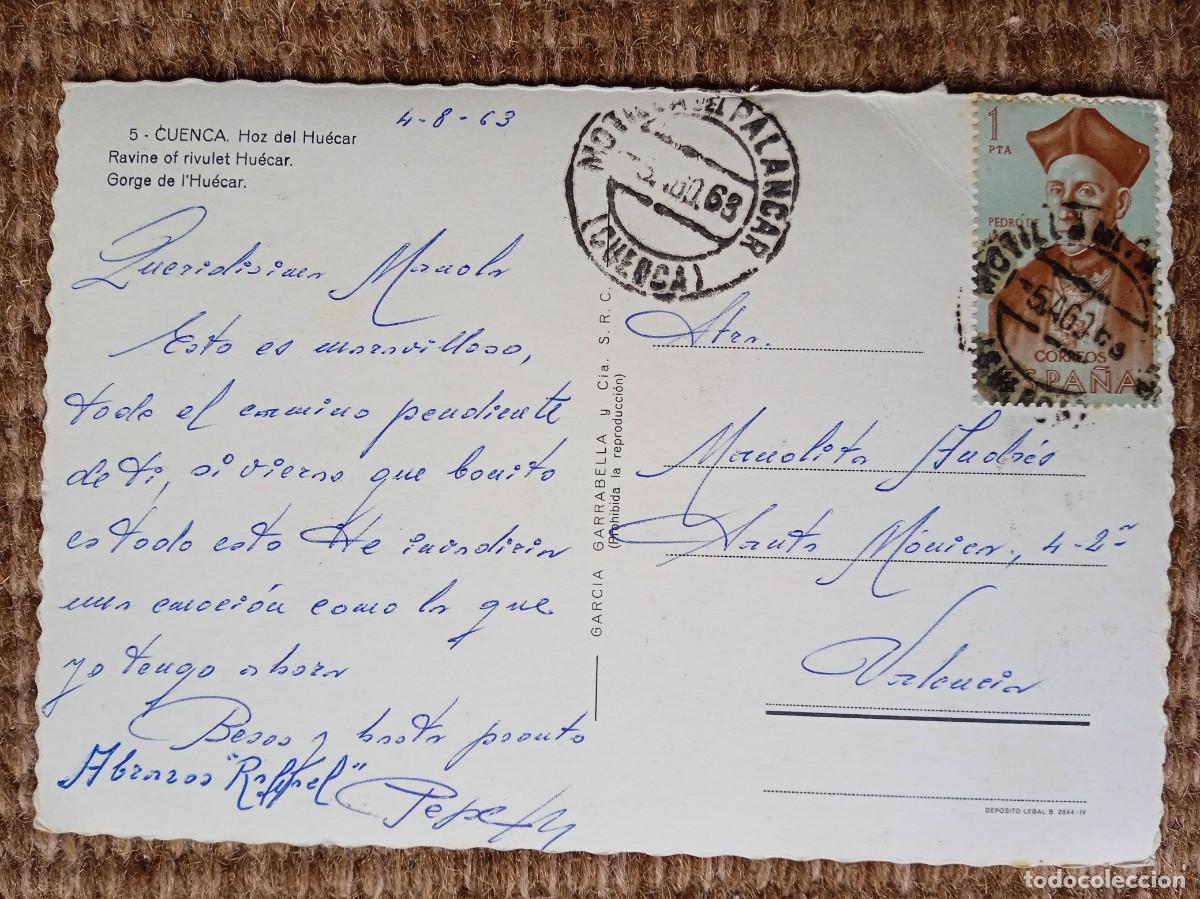 4-8-63
5 - CUENCA. Hoz del Huécar
Ravine of rivulet Huécar.
Gorge de l'Huécar.
Queridisima Manola
Esto es maravilloso,
todo el camino pendiente
de ti, si vieras que bonito
es todo esto Te invadiria
una emoción como la que
yo tengo ahora
Besos y hasta pronto
Abrazos "Raffael"
Pepe
GARCIA GARRABELLA y Cia. S. R. C.
(Prohibida la reproducción)
MOTILLA DEL PALANCAR
5 AGO. 63
(CUENCA)
1
PTA
PEDRO DE
CORREOS
ESPAÑA
MOTILLA
5 AGO. 63
Stra.
Manolita Andrés
Santa Mónica, 4-2ª
Valencia
DEPOSITO LEGAL B 2644-IV
todocoleccion